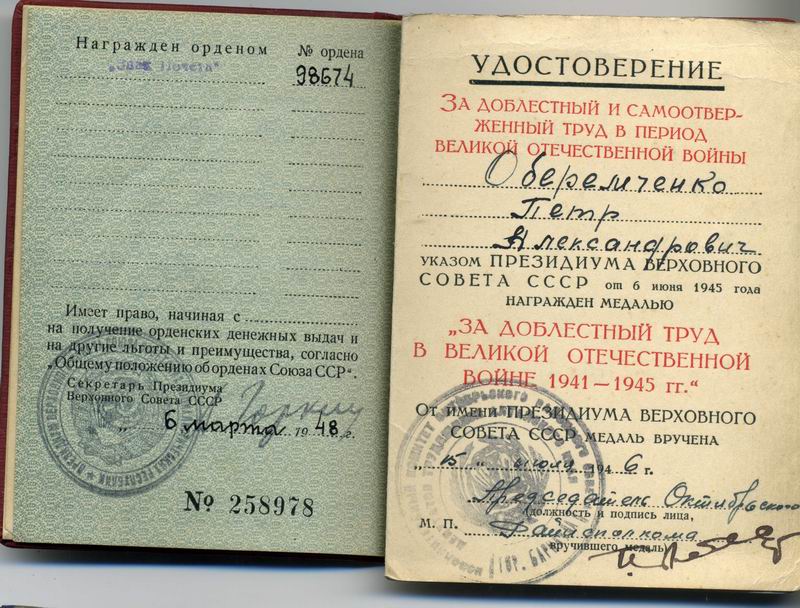 Награжден орденом
№ ордена
„Знак Почета“
98674
Имеет право, начиная с
на получение орденских денежных выдач и
на другие льготы и преимущества, согласно
„Общему положению об орденах Союза ССР“.
Секретарь Президиума
Верховного Совета СССР
„ 6 марта 1948 г.
№ 258978
УДОСТОВЕРЕНИЕ
ЗА ДОБЛЕСТНЫЙ И САМООТВЕР-
ЖЕННЫЙ ТРУД В ПЕРИОД
ВЕЛИКОЙ ОТЕЧЕСТВЕННОЙ ВОЙНЫ
Оберемченко
Петр
Александрович
УКАЗОМ ПРЕЗИДИУМА ВЕРХОВНОГО
СОВЕТА СССР от 6 июня 1945 года
НАГРАЖДЕН МЕДАЛЬЮ
„ЗА ДОБЛЕСТНЫЙ ТРУД
В ВЕЛИКОЙ ОТЕЧЕСТВЕННОЙ
ВОЙНЕ 1941—1945 гг.“
От имени ПРЕЗИДИУМА ВЕРХОВНОГО
СОВЕТА СССР МЕДАЛЬ ВРУЧЕНА
„15“ июля 1946 г.
Председатель Октябрьского
(должность и подпись лица,
М. П. Райисполкома
вручившего медаль)